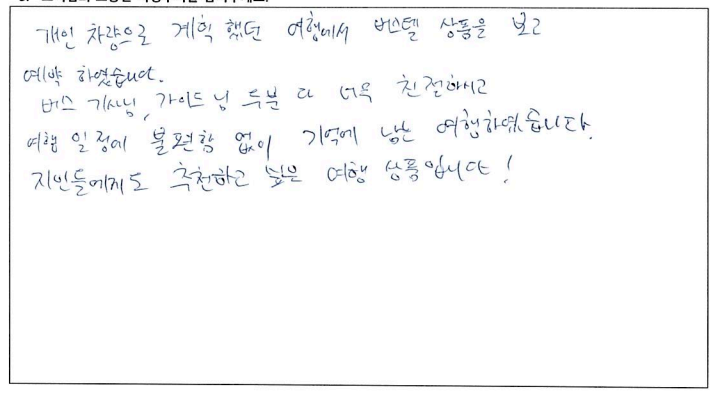 개인 차량으로 계획 했던 여행에서 버스텔 상품을 보고
예약 하였습니다.
버스 기사님, 가이드 님 두분 다 너무 친절하시고
여행 일정에 불편함 없이 기억에 남는 여행하였습니다.
지인들에게도 추천하고 싶은 여행 상품입니다!